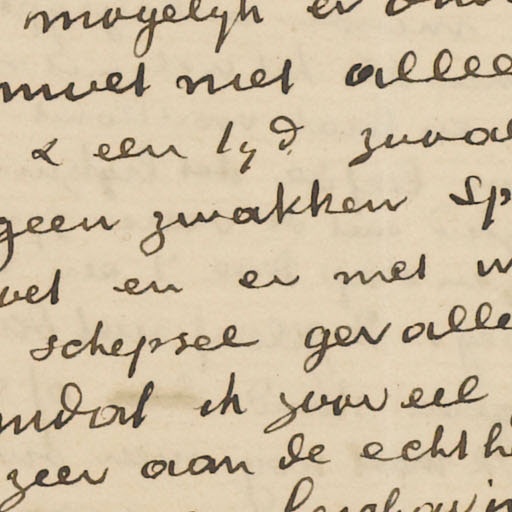 mogelyk er
moet met allee
& een tyd zwa
geen zwakken Sp
oet en er met
schepsel gevalle
mdat ik zooveel
zeer aan de echth